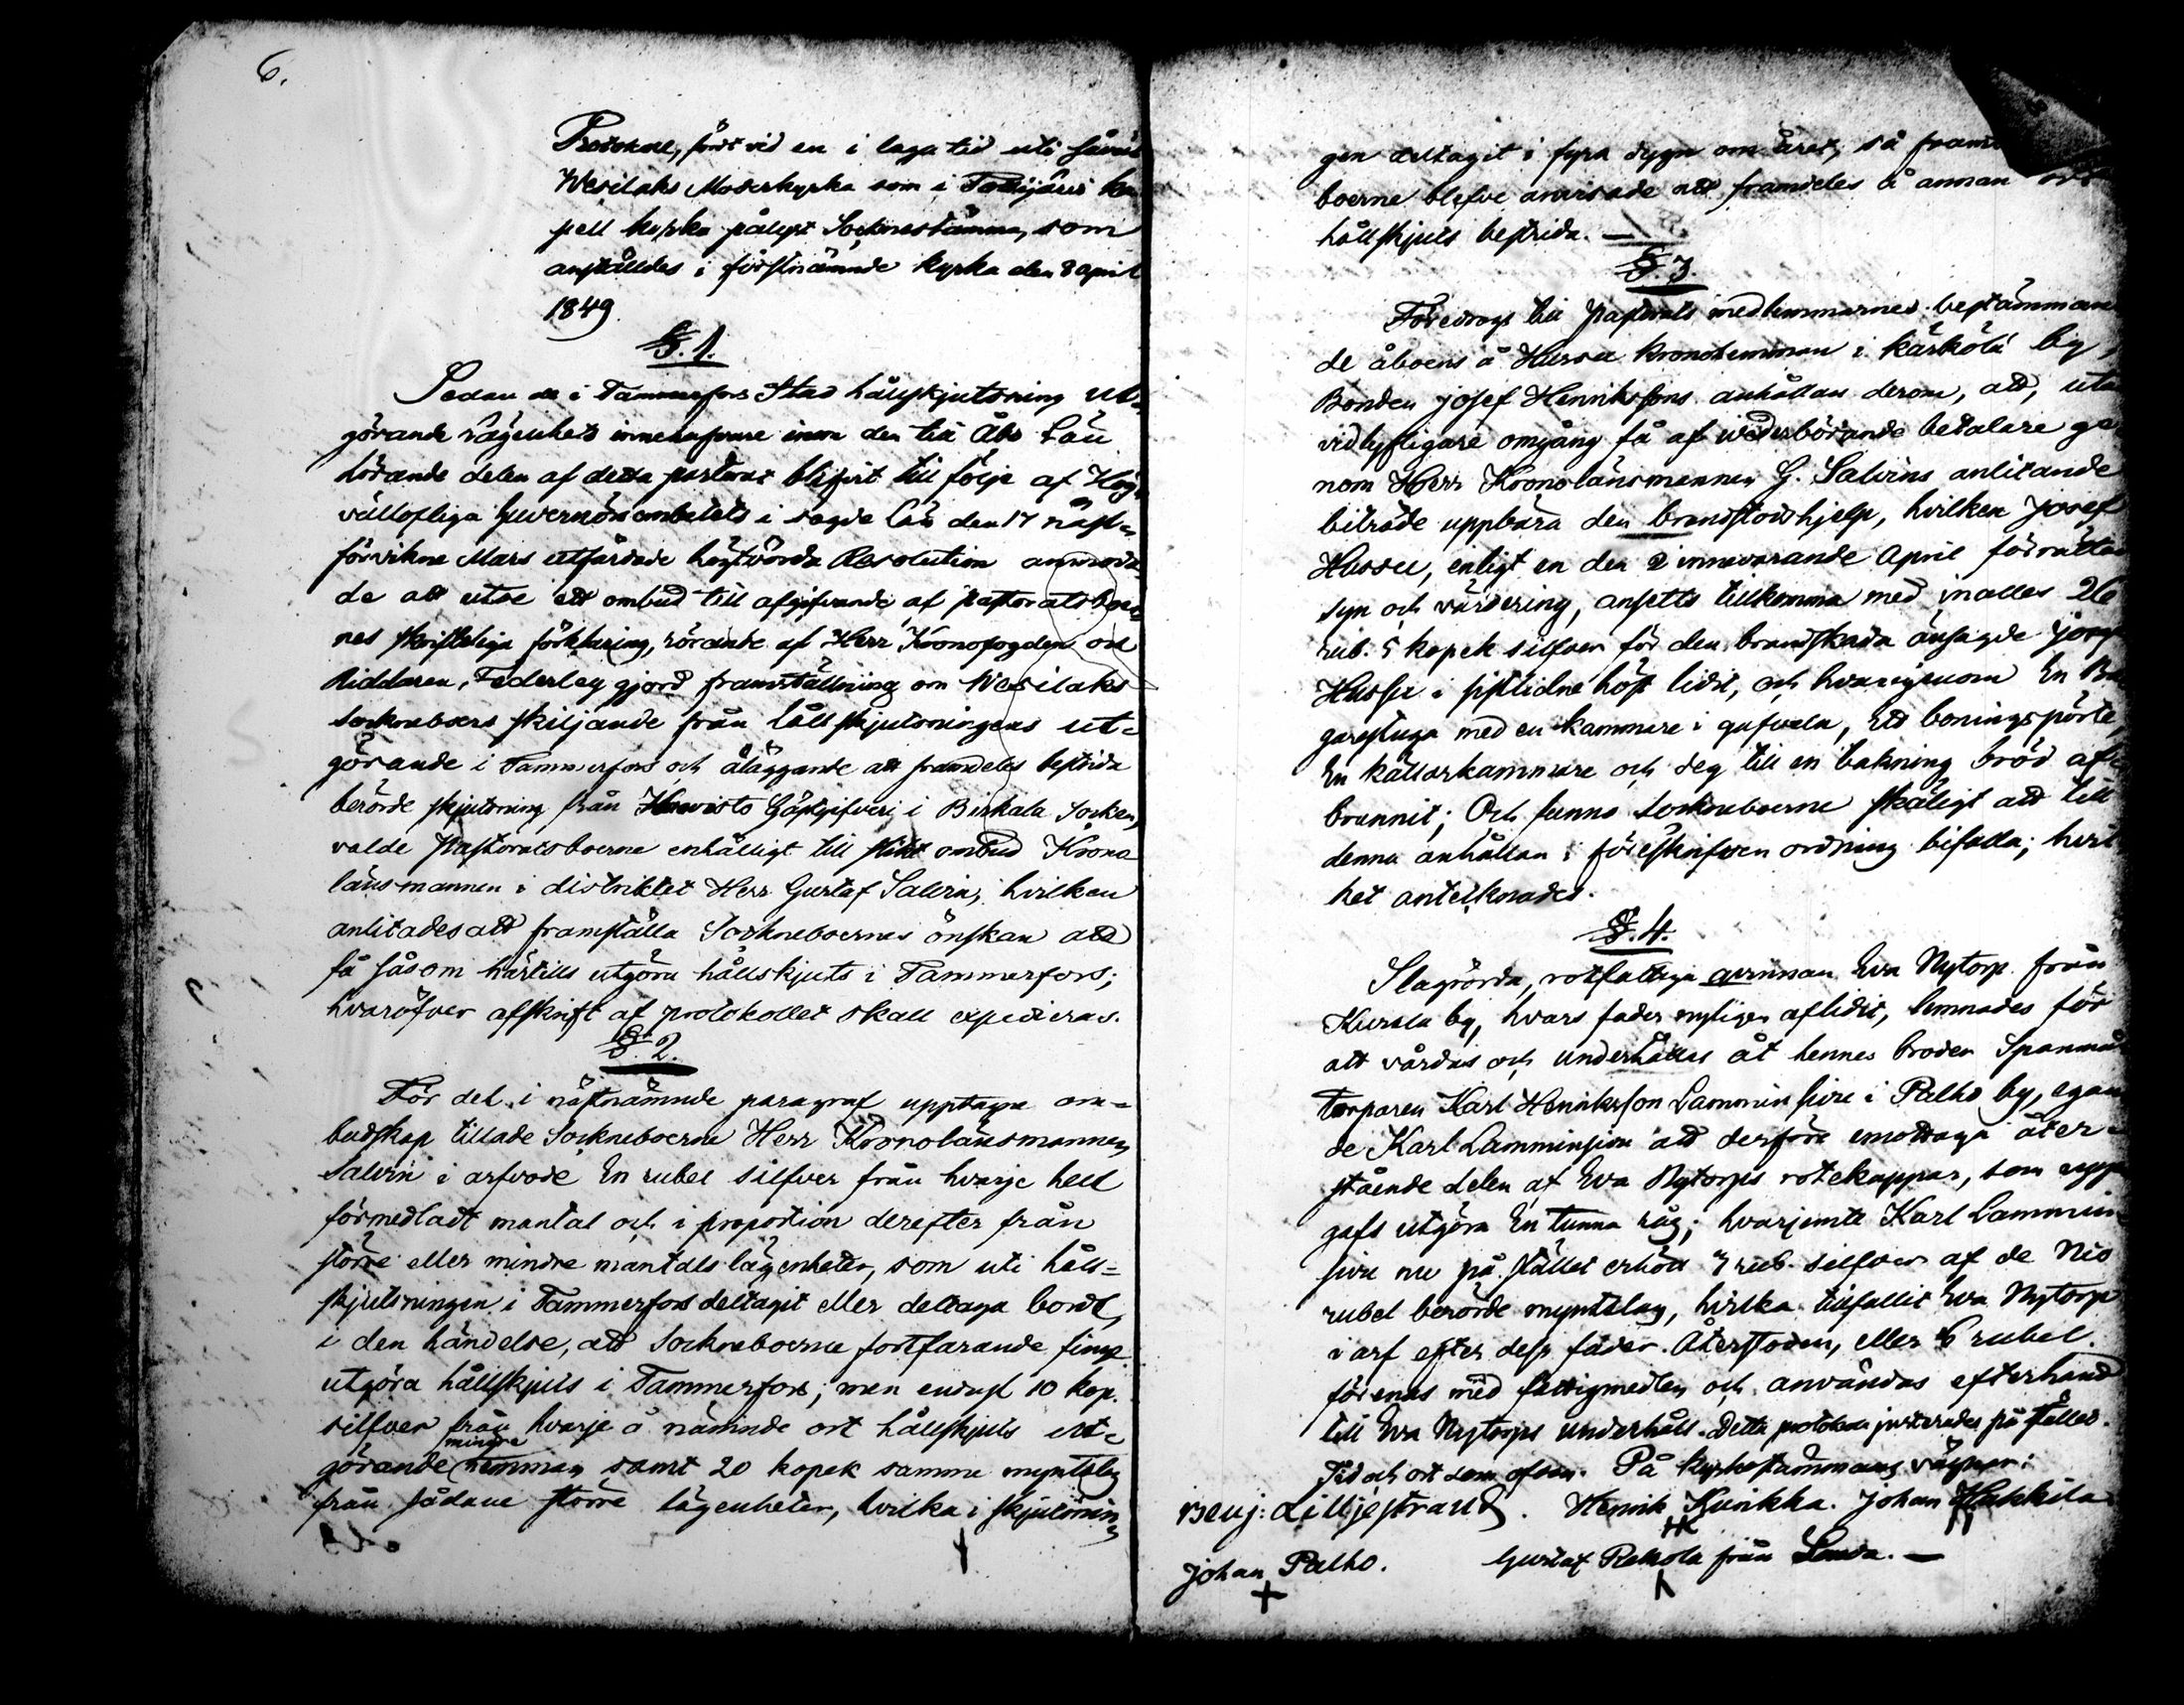 6.
Protokoll, fördt vid en i laga tid uti såväl
Wesilaks Moderkyrka som i Tottijärvi ka
pell kyrka pålyst Socknestämma, som
anställdes i förstnämnde kyrka den 8 april
1849.
§. 1.
Sedan de i Tammerfors Stad hållskjutsning ut-
görande lägenhets innehafvare inom den till Åbo Län
hörande delen af detta pastorat blifvit till följe af Hög-
vällofliga Guvernörsembetets i sagde län den 17 näst-
förvikne Mars utfärdade högtvörda Resolution anmoda-
de att utse ett ombud till afgifvande af pastoratsboer-
nes skrifteliga förklaring, rörande af Herr Kronofogden och
Riddaren Federley gjord framställning om Wesilaks
sockneboers skiljande från hållskjutsningens ut-
görande i Tammerfors och åläggande att framdeles bestrida
berörde skjutsning från Haavisto Gästgifveri i Birkala Socken,
valde Pastoratsboerne enhälligt till slikt ombud Krono
länsmannen i distriktet Herr Gustaf Salvin, hvilken
anlitades att framställa Sockneboernes önskan att
få såsom härtills utgöra hållskjuts i Tammerfors;
hvaröfver afskrift af protokollet skall expedieras.
§. 2.
För det i nästnämnde paragraf upptagne om-
budskap tillade Sockneboerne Herr Kronolänsmannen
Salvin i arfvode En rubel silfver från hvarje helt
förmedladt mantal och i proportion derefter från
större eller mindre mantals lägenheter, som uti håll-
skjutsningen i Tammerfors deltagit eller deltaga bordt,
i den händelse, att Sockneboerne fortfarande finge
utgöra hållskjuts i Tammerfors; men endast 10 kop.
silfver från hvarje å nämnde ort hållskjuts ut-
görande mindre hemman samt 20 kopek samma myntslag
från sådane större lägenheter, hvilka i skjutsnin-
gen deltagit i fyra dygn om året, så framt
boerne blefve anvisade att framdeles å annan ort
hållskjuts bestrida. —
§. 3.
Föredrogs till Pastorats medlemmarnes bestämman
de åboens å Hussu kronohemman i Kärkölä by,
Bonden Josef Henrikssons anhållan derom, att, utan
vidlyftigare omgång få af wederbörande betalare ge-
nom Herr Kronolänsmannen G. Salvins anlitande
biträde uppbära den brandstodshjelp, hvilken Josef
Hussu, enligt en den 2 innevarande April förrättad
syn och värdering, ansetts tillkomma med inalles 26
rub. 5 kopek silfver för den brandskada änsagde Josef
Hussu i sistlidne höst lidit, och hvarigenom En Ba
garestuga med en kammare i gafveln, ett boningspörte,
En källarkammare och deg till en bakning bröd af-
brunnit; Och funno Sockneboerne skäligt att till
denna anhållan i föreskrifven ordning bifalla; hvil
ket antecknades.
§. 4.
Slagrörda, rotfattiga qvinnan Eva Nytorp från
Kurala by, hvars fader nyligen aflidit, lemnades för
att vårdas och underhållas åt hennes broder Spanmåls
torparen Karl Henriksson Lamminsivu i Palho by, egan
de Karl Lamminsivu att derföre emottaga åter-
stående delen af Eva Nytorps rotekappar, som upp
gafs utgöra En tunna råg; hvarjemte Karl Lammin-
sivu nu på stället erhöll 3 rub. silfver af de Nio
rubel berörde myntslag, hvilka tillfallit Eva Nytorp
i arf efter dess fader. Återstoden, eller 6 rubel.
förenas med fattigmedlen och användas efterhand
till Eva Nytorps underhåll. Detta protokoll justerades på stället.
Tid och ort som ofvan. På kyrkostämmans vägnar:
Benj: Lilljestrand. Henrik Kuvikka. Johan Hakkila
Johan Palho. Gustaf Rekola från Lauda. —